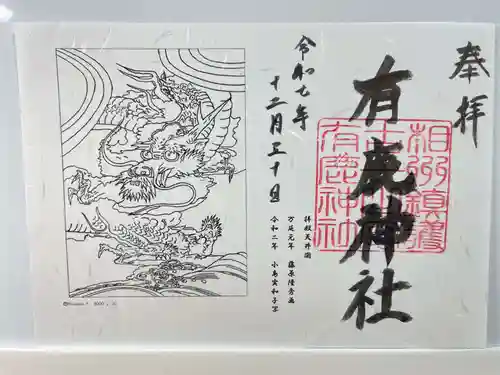 奉拝
有鹿神社
相州鎮護
有鹿神社
拝殿天井画
万延元年 藤原隆秀画
令和二年
令和七年
十二月三十日